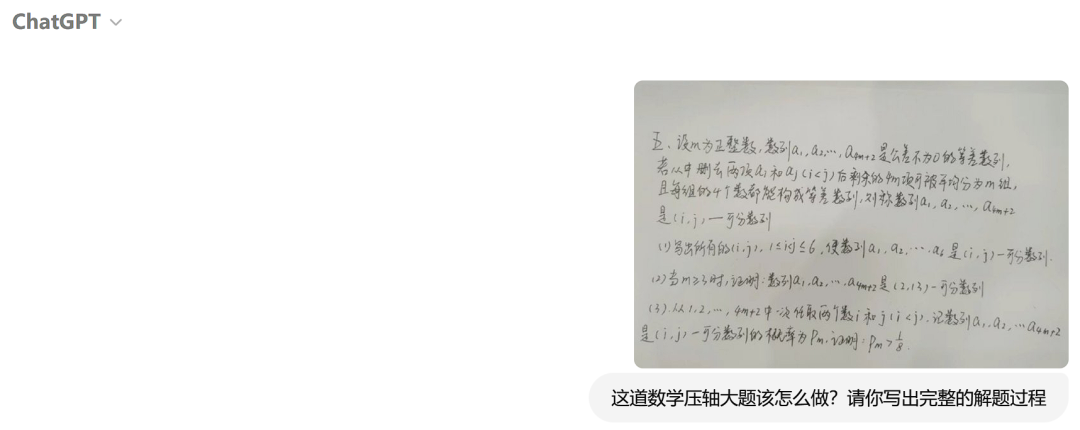 ChatGPT
五、设m为正整数,数列a₁,a₂,…,a₄ₘ₊₂是公差不为0的等差数列,
若从中删去两项aᵢ和aⱼ(i<j)后剩余的4m项可被平均分为m组,
且每组的4个数都能构成等差数列,则称数列a₁,a₂,…,a₄ₘ₊₂
是(i,j)一可分数列
(1)写出所有的(i,j),1≤i<j≤6,使数列a₁,a₂,…a₆是(i,j)一可分数列.
(2)当m≥3时,证明:数列a₁,a₂,…,a₄ₘ₊₂是(2,13)一可分数列
(3).从1,2,…,4m+2中一次任取两个数i和j(i<j).记数列a₁,a₂,…a₄ₘ₊₂
是(i,j)一可分数列的概率为Pₘ.证明:Pₘ>1/8.
这道数学压轴大题该怎么做?请你写出完整的解题过程